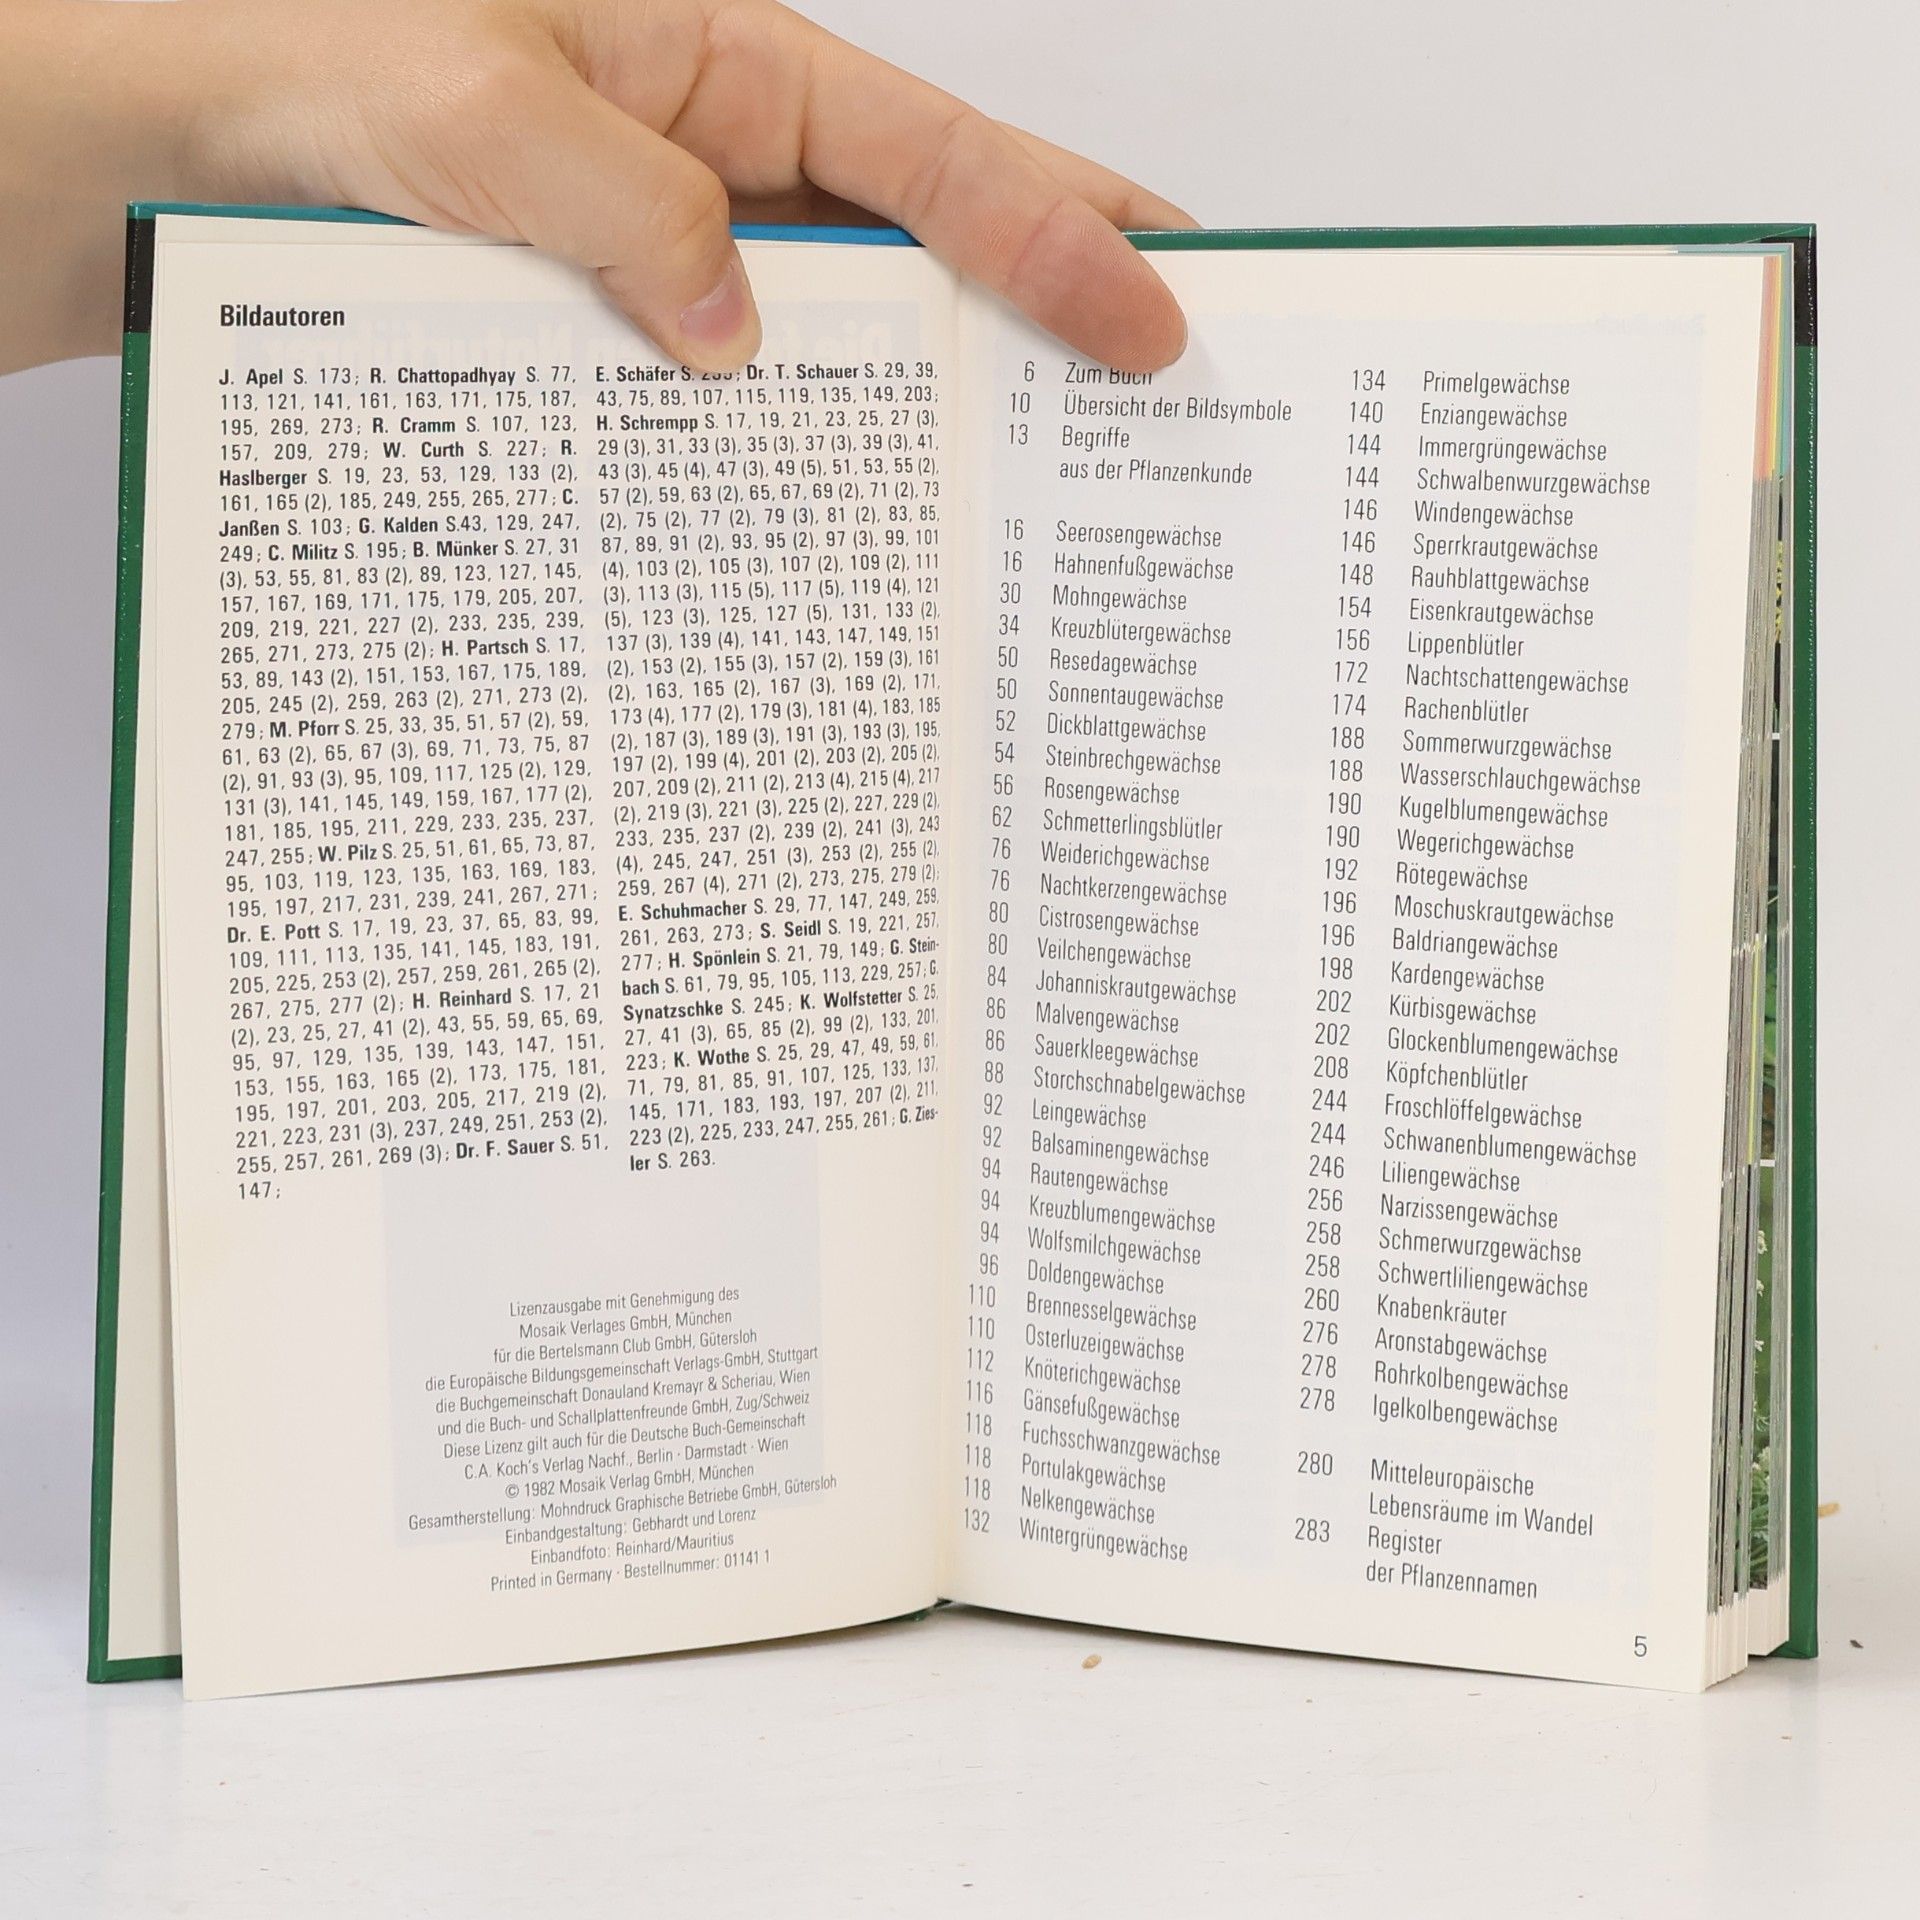 Bildautoren
J. Apel S. 173; R. Chattopadhyay S. 77,
113, 121, 141, 161, 163, 171, 175, 187,
195, 269, 273; R. Cramm S. 107, 123,
157, 209, 279; W. Curth S. 227; R.
Haslberger S. 19, 23, 53, 129, 133 (2),
161, 165 (2), 185, 249, 255, 265, 277; C.
Janßen S. 103; G. Kalden S.43, 129, 247,
249; C. Militz S. 195; B. Münker S. 27, 31
(3), 53, 55, 81, 83 (2), 89, 123, 127, 145,
157, 167, 169, 171, 175, 179, 205, 207,
209, 219, 221, 227 (2), 233, 235, 239,
265, 271, 273, 275 (2); H. Partsch S. 17,
53, 89, 143 (2), 151, 153, 167, 175, 189,
205, 245 (2), 259, 263 (2), 271, 273 (2),
279; M. Pforr S. 25, 33, 35, 51, 57 (2), 59,
61, 63 (2), 65, 67 (3), 69, 71, 73, 75, 87
(2), 91, 93 (3), 95, 109, 117, 125 (2), 129,
131 (3), 141, 145, 149, 159, 167, 177 (2),
181, 185, 195, 211, 229, 233, 235, 237,
247, 255; W. Pilz S. 25, 51, 61, 65, 73, 87,
95, 103, 119, 123, 135, 163, 169, 183,
195, 197, 217, 231, 239, 241, 267, 271;
Dr. E. Pott S. 17, 19, 23, 37, 65, 83, 99,
109, 111, 113, 135, 141, 145, 183, 191,
205, 225, 253 (2), 257, 259, 261, 265 (2),
267, 275, 277 (2); H. Reinhard S. 17, 21
(2), 23, 25, 27, 41 (2), 43, 55, 59, 65, 69,
95, 97, 129, 135, 139, 143, 147, 151,
153, 155, 163, 165 (2), 173, 175, 181,
195, 197, 201, 203, 205, 217, 219 (2),
221, 223, 231 (3), 237, 249, 251, 253 (2),
255, 257, 261, 269 (3); Dr. F. Sauer S. 51,
147;
E. Schäfer S. ; Dr. T. Schauer S. 29, 39,
43, 75, 89, 107, 115, 119, 135, 149, 203;
H. Schrempp S. 17, 19, 21, 23, 25, 27 (3),
29 (3), 31, 33 (3), 35 (3), 37 (3), 39 (3), 41,
43 (3), 45 (4), 47 (3), 49 (5), 51, 53, 55 (2),
57 (2), 59, 63 (2), 65, 67, 69 (2), 71 (2), 73
(2), 75 (2), 77 (2), 79 (3), 81 (2), 83, 85,
87, 89, 91 (2), 93, 95 (2), 97 (3), 99, 101
(4), 103 (2), 105 (3), 107 (2), 109 (2), 111
(3), 113 (3), 115 (5), 117 (5), 119 (4), 121
(5), 123 (3), 125, 127 (5), 131, 133 (2),
137 (3), 139 (4), 141, 143, 147, 149, 151
(2), 153 (2), 155 (3), 157 (2), 159 (3), 161
(2), 163, 165 (2), 167 (3), 169 (2), 171,
173 (4), 177 (2), 179 (3), 181 (4), 183, 185
(2), 187 (3), 189 (3), 191 (3), 193 (3), 195,
197 (2), 199 (4), 201 (2), 203 (2), 205 (2),
207, 209 (2), 211 (2), 213 (4), 215 (4), 217
(2), 219 (3), 221 (3), 225 (2), 227, 229 (2),
233, 235, 237 (2), 239 (2), 241 (3), 243
(4), 245, 247, 251 (3), 253 (2), 255 (2),
259, 267 (4), 271 (2), 273, 275, 279 (2);
E. Schuhmacher S. 29, 77, 147, 249, 259,
261, 263, 273; S. Seidl S. 19, 221, 257,
277; H. Spönlein S. 21, 79, 149; G. Stein-
bach S. 61, 79, 95, 105, 113, 229, 257; G.
Synatzschke S. 245; K. Wolfstetter S. 25,
27, 41 (3), 65, 85 (2), 99 (2), 133, 201,
223; K. Wothe S. 25, 29, 47, 49, 59, 61,
71, 79, 81, 85, 91, 107, 125, 133, 137,
145, 171, 183, 193, 197, 207 (2), 211,
223 (2), 225, 233, 247, 255, 261; G. Zies-
ler S. 263.
Lizenzausgabe mit Genehmigung des
Mosaik Verlages GmbH, München
für die Bertelsmann Club GmbH, Gütersloh
die Europäische Bildungsgemeinschaft Verlags-GmbH, Stuttgart
die Buchgemeinschaft Donauland Kremayr & Scheriau, Wien
und die Buch- und Schallplattenfreunde GmbH, Zug/Schweiz
Diese Lizenz gilt auch für die Deutsche Buch-Gemeinschaft
C.A. Koch's Verlag Nachf., Berlin · Darmstadt · Wien
© 1982 Mosaik Verlag GmbH, München
Gesamtherstellung: Mohndruck Graphische Betriebe GmbH, Gütersloh
Einbandgestaltung: Gebhardt und Lorenz
Einbandfoto: Reinhard/Mauritius
Printed in Germany · Bestellnummer: 01141 1
6 Zum Buch
10 Übersicht der Bildsymbole
13 Begriffe
aus der Pflanzenkunde
16 Seerosengewächse
16 Hahnenfußgewächse
30 Mohngewächse
34 Kreuzblütergewächse
50 Resedagewächse
50 Sonnentaugewächse
52 Dickblattgewächse
54 Steinbrechgewächse
56 Rosengewächse
62 Schmetterlingsblütler
76 Weiderichgewächse
76 Nachtkerzengewächse
80 Cistrosengewächse
80 Veilchengewächse
84 Johanniskrautgewächse
86 Malvengewächse
86 Sauerkleegewächse
88 Storchschnabelgewächse
92 Leingewächse
92 Balsaminengewächse
94 Rautengewächse
94 Kreuzblumengewächse
94 Wolfsmilchgewächse
96 Doldengewächse
110 Brennesselgewächse
110 Osterluzeigewächse
112 Knöterichgewächse
116 Gänsefußgewächse
118 Fuchsschwanzgewächse
118 Portulakgewächse
118 Nelkengewächse
132 Wintergrüngewächse
134 Primelgewächse
140 Enziangewächse
144 Immergrüngewächse
144 Schwalbenwurzgewächse
146 Windengewächse
146 Sperrkrautgewächse
148 Rauhblattgewächse
154 Eisenkrautgewächse
156 Lippenblütler
172 Nachtschattengewächse
174 Rachenblütler
188 Sommerwurzgewächse
188 Wasserschlauchgewächse
190 Kugelblumengewächse
190 Wegerichgewächse
192 Rötegewächse
196 Moschuskrautgewächse
196 Baldriangewächse
198 Kardengewächse
202 Kürbisgewächse
202 Glockenblumengewächse
208 Köpfchenblütler
244 Froschlöffelgewächse
244 Schwanenblumengewächse
246 Liliengewächse
256 Narzissengewächse
258 Schmerwurzgewächse
258 Schwertliliengewächse
260 Knabenkräuter
276 Aronstabgewächse
278 Rohrkolbengewächse
278 Igelkolbengewächse
280 Mitteleuropäische
Lebensräume im Wandel
283 Register
der Pflanzennamen
5